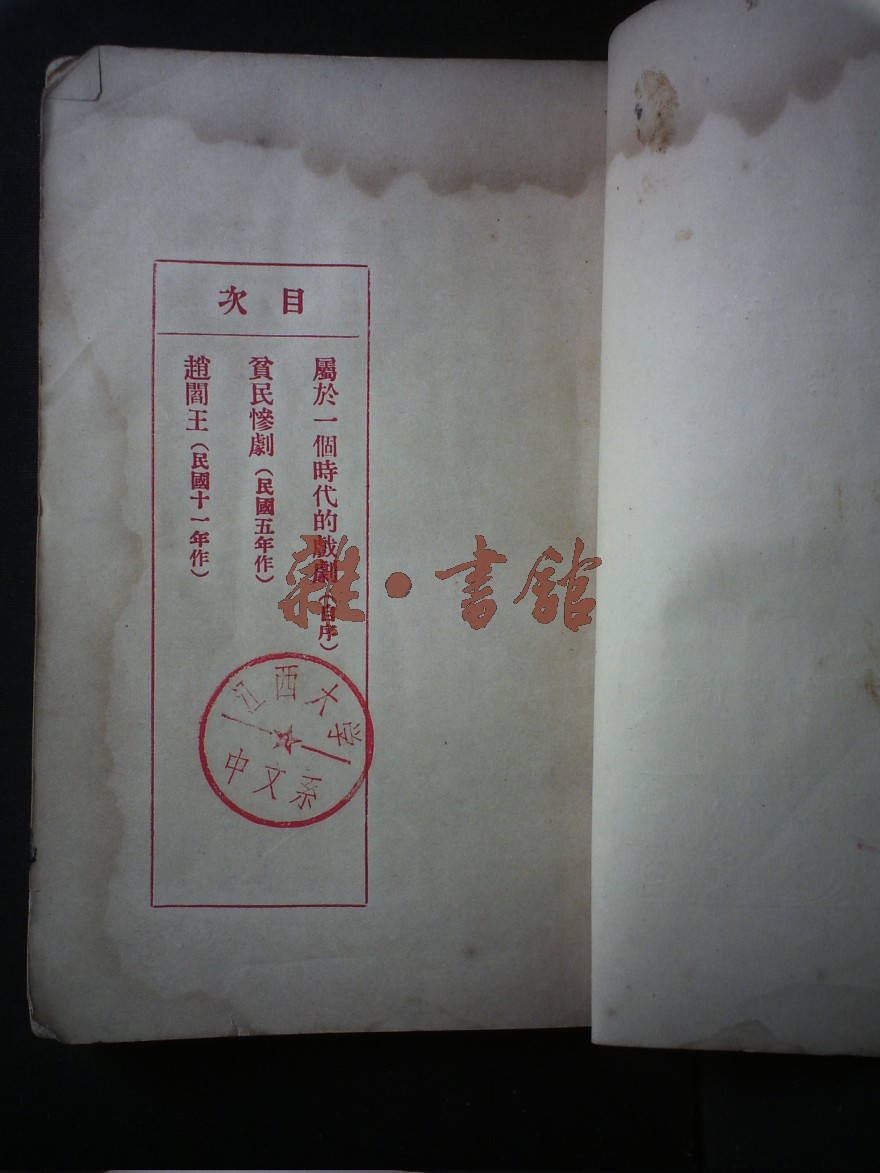 目次
屬於一個時代的戲劇（自序）
貧民慘劇（民國五年作）
趙閻王（民國十一年作）
江西大学
中文系
雜·書館